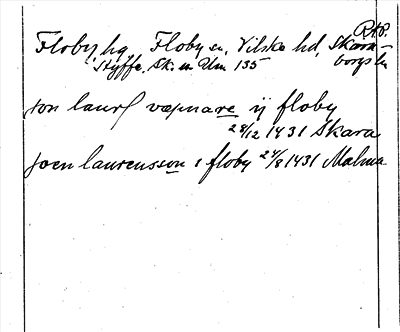 RAP.
Floby hg, Floby sn, Vilske hd, Skara-
borgs län
Styffe, Sk. u. Un. 135
jon laurß væpnare ij floby
28/12 1431 Skara
joen laurensson i floby 24/8 1431 Malma